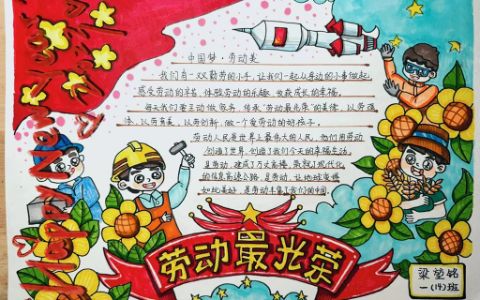 中国梦·劳动美
我们有一双勤劳的小手,让我们一起从身边的小事做起,
感受劳动的辛苦,体验劳动的乐趣,收获成长的幸福。
每天我们要主动做家务,传承"劳动最光荣"的美德,以劳健
体,以劳育美,以劳创新,做一个爱劳动的好孩子。
劳动人民是世界上最伟大的人民,他们用劳动
创造了世界,创造了我们今天的幸福生活,
是劳动,建成了万丈高楼,筑就了现代化
的信息高速公路,是劳动,让地球变得
如此美好,是劳动丰富了我们的中国。
劳动最光荣
梁莹铭
一(14)班